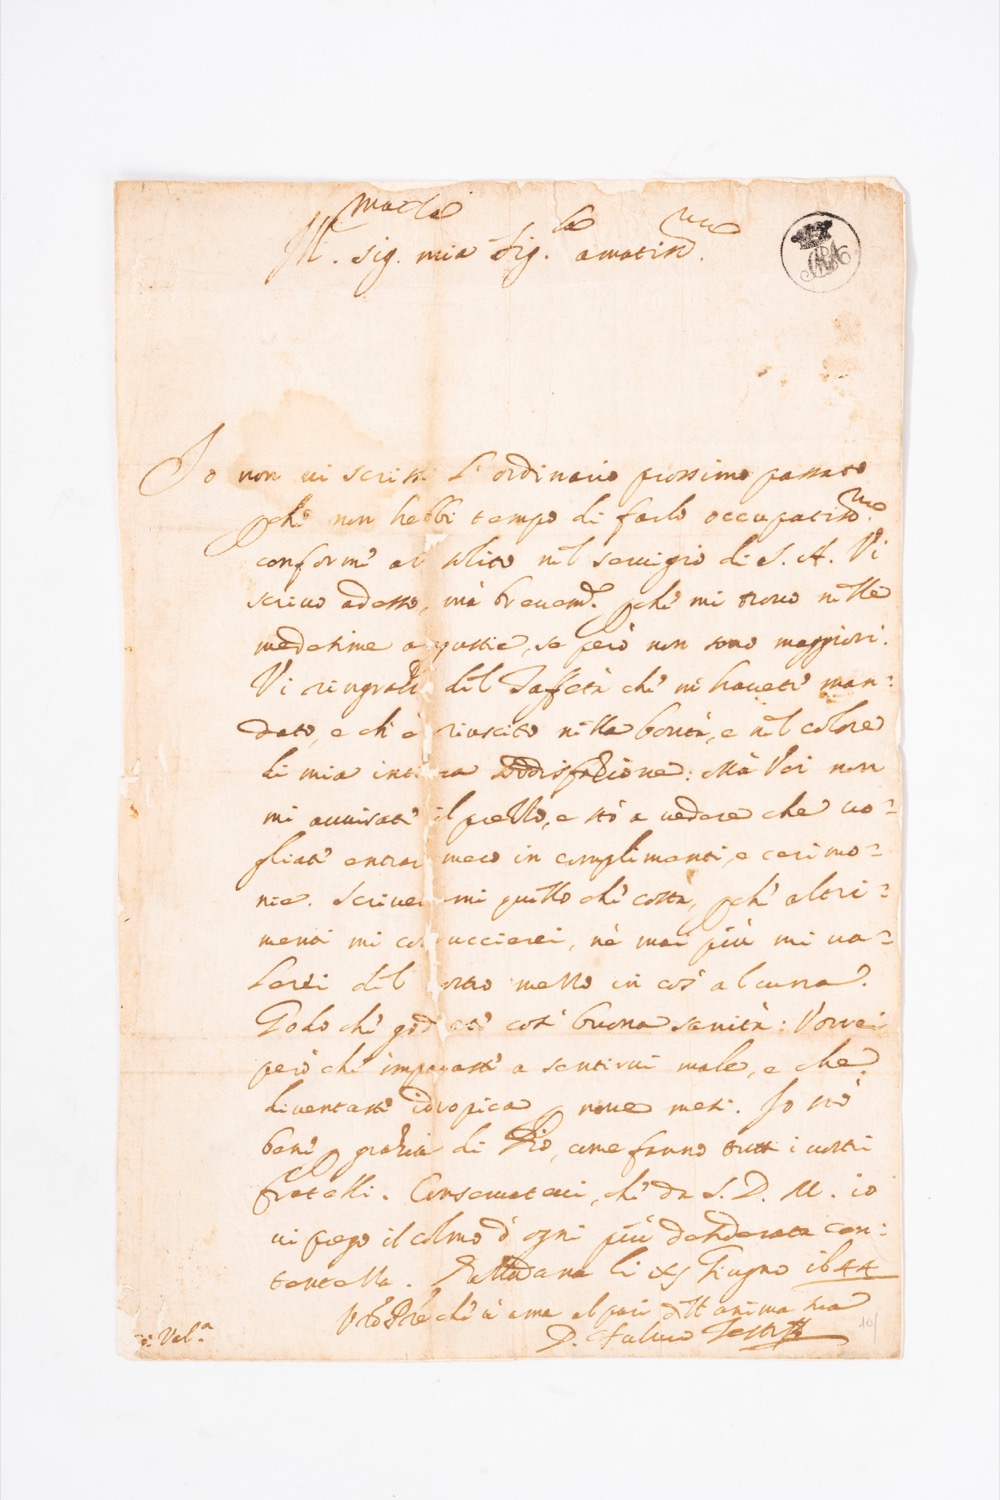 M.^to Sig. mia Sig.^ra amatiss.^ma
Io non vi scrissi l'ordinario prossimo passato
pche non hebbi tempo di farlo occupatiss.^mo
conforme al solito nel servigio di S. A. Vi
scrivo adesso, mà brevem.^te pche mi trovo nelle
medesime a gustie, se però non sono maggiori.
Vi ringratio del Taffetà che mi havete man=
dato, e ch'è riuscito nella bontà, e nel colore
di mia intera sodisfazione: Mà Voi non
mi avvisate il prezzo, e stò a vedere che vo=
gliate entrar meco in complimenti, e cerimo=
nie. Scrivetemi quello che costa, pche altri=
menti mi coruccierei, nè mai più mi va=
lerei del vostro mezzo in cos' alcuna.
Godo che godiate così buona sanità: Vorrei
però che imparaste a sentirvi male, e che
diventaste idropica p nove mesi. Io stò
bene p grazia di Dio, come fanno tutti i vostri
fratelli. Conservatevi, che da S. D. M. io
vi prego il colmo d'ogni più desiderata con=
tentezza. li Giugno 1644
Vro Pre che v'ama al pari dell'anima sua
D. Fulvio Testi
Vel.^a
101